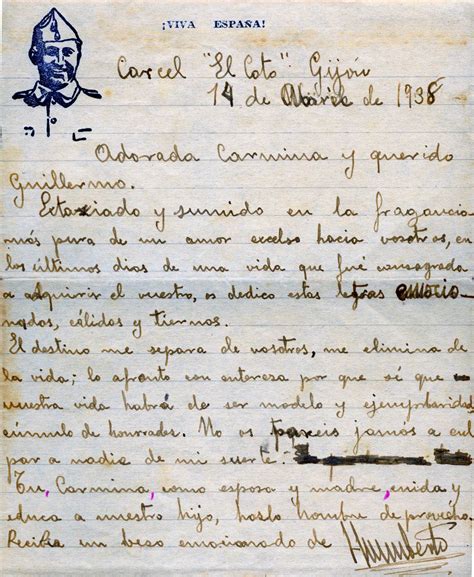 ¡VIVA ESPAÑA!
Carcel "El Coto" Gijón
14 de Abril de 1938
Adorada Carmina y querido
Guillermo.
Extasiado y sumido en la fragancia
más pura de un amor excelso hacia vosotros, en
los últimos dias de una vida que fué consagrada
a adquirir el vuestro, os dedico estas letras emocio
nados, cálidos y tiernos.
El destino me separa de vosotros, me elimina de
la vida; lo afronto con entereza por que sé que
vuestra vida habrá de ser modelo y ejemplaridad
cúmulo de honrrades. No os pareis jamás a cul
par a nadie de mi suerte.
Tu, Carmina, como esposa y madre, cuida y
educa a nuestro hijo, haslo hombre de provecho.
Recibe un beso emocionado de Humberto